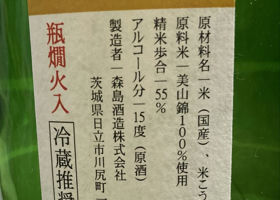 原材料名ー米（国産）、米こう
原料米ー美山錦100%使用
精米歩合ー55%
アルコール分ー15度（原酒）
製造者ー森島酒造株式会社
茨城県日立市川尻町
瓶燗火入
冷蔵推奨